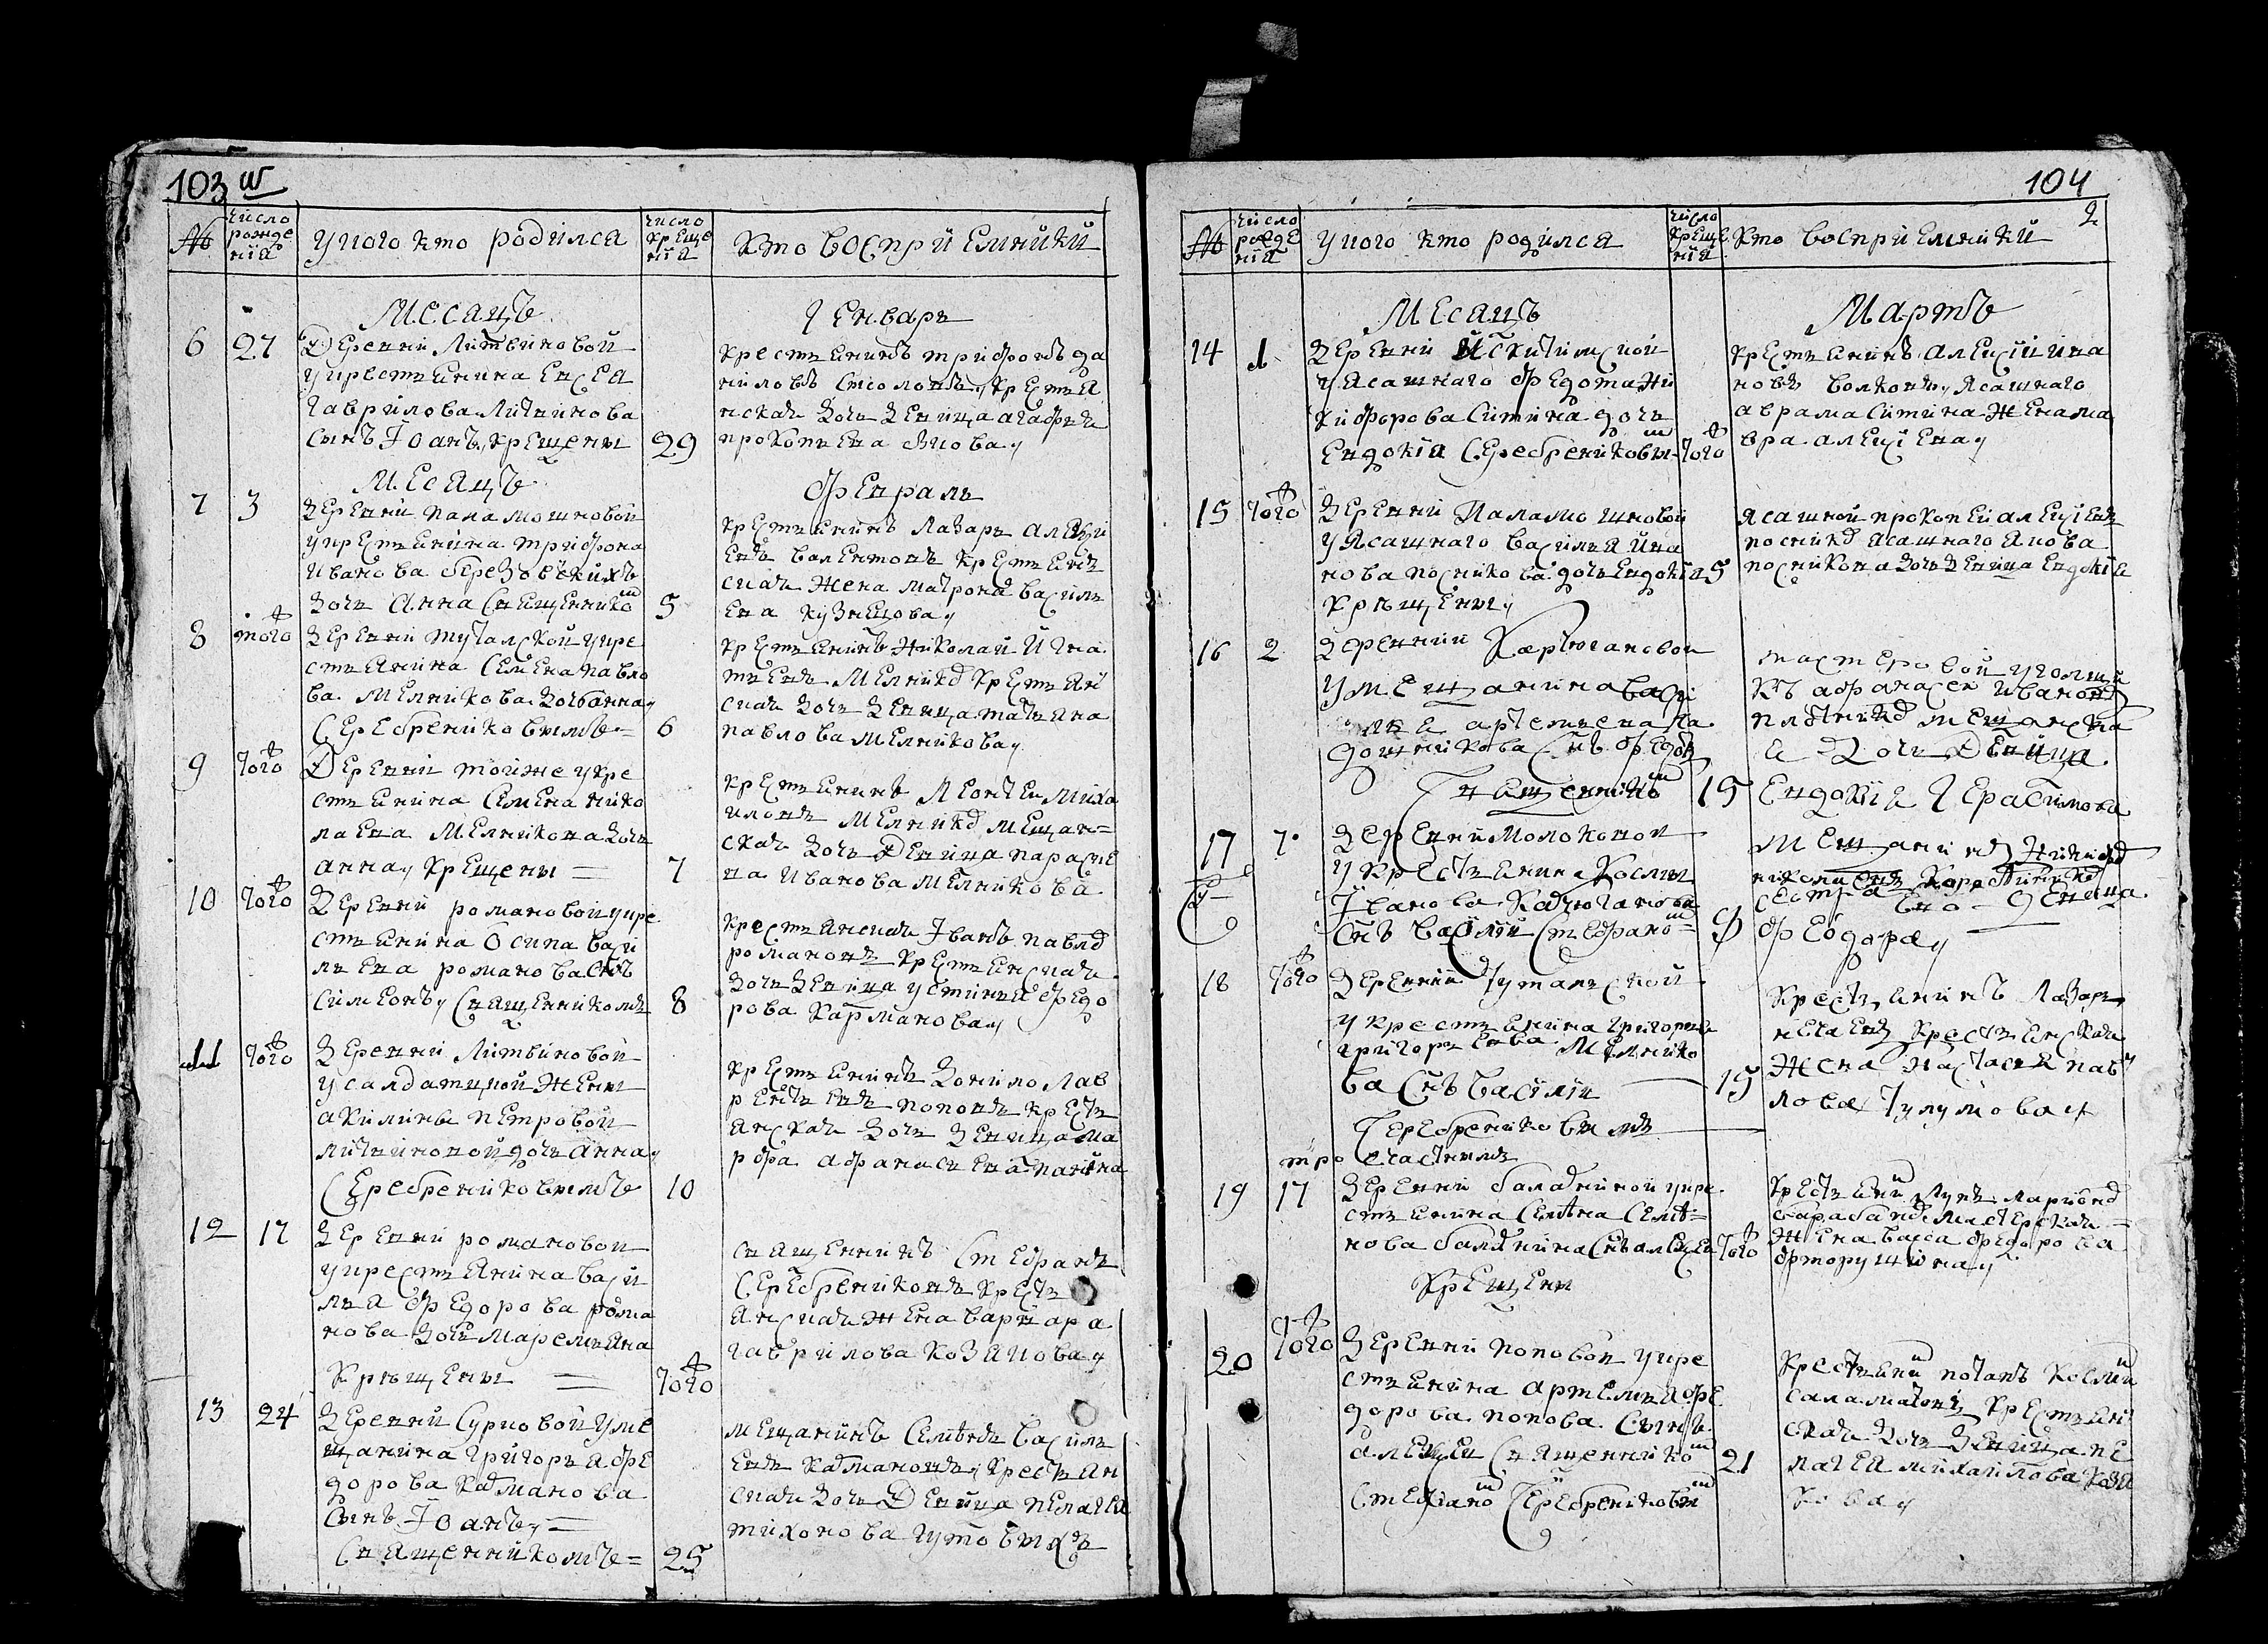 103 ѡ
№
число рождения
у ного кто родился
число крещения
кто восприемники
Месацъ
Генварь
6
27
Деревни Литвиновой
у крестьянина Евсея
Гаврилова Литвинова
сынъ Іоанъ, крещены
29
крестьянинъ трифонъ да
ниловъ кресть я
нская дочь девица агафья
прокопьева
Месацъ
Февраль
7
3
деревни паламошновой
у крестьянина трифона
иванова березовскихъ
дочь Анна священнико
5
крестьянинъ Лазарь алексі
евъ валентовъ крестьян
ская жена матрона василь
ева кузнецова
8
того
деревни туталской укре
стьянина Семена павло
ва Мелникова дочь анна
Серебрениковымъ
6
крестьянинъ николай игна
тьевъ Мелнико крестьян
ская дочь девица татьяна
павлова Мелникова
9
того
Деревни тойже укре
стьянина Семена нико
лаева Мелникова дочь
анна, крещены
7
крестьянинъ Леонтеи Миха
иловъ Мелнико мещан=
ская дочь Девица параске
ва иванова Мелникова
10
того
Деревни романовой укре
стьянина Осипа васи
льева романова снъ
симеонъ, священникомъ
8
крестьянская Іванъ павло
романовъ крестьянская
дочь девица устинья федо
рова карманова
11
того
Деревни Литвиновой
у салдатцкой жены
акилины петровой
литвиновой дочь анна,
Серебрениковымъ
10
крестьянинъ данило Лав
рентьевъ поповъ кресть
янская дочь девица ма
рфа афанасьева панина
12
17
деревни романовой
у крестьянина васи
лья федорова рома
нова дочь Маремьяна
крещены
того
священникъ Стефанъ
Серебрениковъ кресть
янская жена варвара
гаврилова козакова
13
24
деревни Сурковой у ме
щанина григорья фе
дорова кадманова
сынъ Іоанъ,
священникомъ
25
мещанинъ василь
евъ кадмановъ, крестьян
ская дочь Девица пелагея
тихонова гутовыхъ
104
2
№
число рождения
у ного кто родился
число крещения
кто восприемники
Месацъ
Мартъ
14
1
деревни искитимской
у Ясашнаго федота ни
кифорова Ситина дочь
Евдокія Серебрениковы
того
крестьянинъ алексій ива
новъ волковъ, Ясашнаго
аврама ситина жена ма
вра алексіева
15
того
деревни Паламошновой
у Ясашнаго василья ива
нова посникова дочь Евдокія
крещены
5
Ясашной прокопей алексіевъ
посника ясашнаго якова
посникова дочь девица Евдокія
16
2
деревни Корчюгановой
у мещанина васи
лья артемьева ка
дошникова снъ федотъ
священнико
15
мастеровой
афанасеи иванов
плотнико мещанска
я дочь Девица
Евдокія Герасимова
17
7
деревни Молоковой
у крестьянина Космы
Іванова
снъ василій Стефано
9
мещанинъ
николаевъ
сестра ево девица
феодора
18
того
деревни Туталской
у крестьянина григорья
григорьева Мелнико
ва снъ василій
Серебрениковымъ
15
крестьянинъ Лазарь
нечаевъ крестьянская
жена настасья пав
лова Тулумова
троечастнымъ
19
17
деревни балахниной укре
стьянина
нова балахнина снъ алексеи
крещены
того
крестьяни Лука ларионо
мастерская
жена васса федорова
фторушина
20
того
деревни поповой укре
стьянина артемья фе
дорова попова сынъ
алексеи священнико
Стефано Серебрениковы
21
крестьяни потапъ косми
саламатовъ крестьян
ская дочь девица пе
лагея михаилова каза
кова